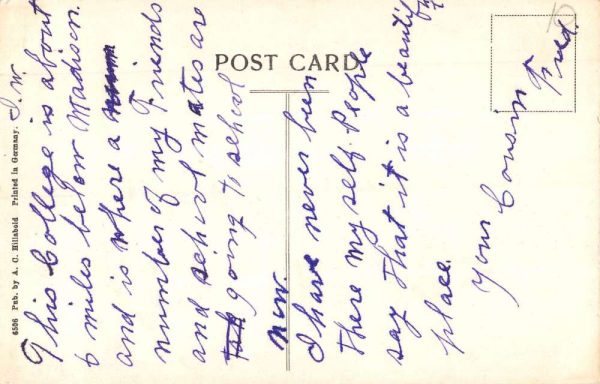 POST CARD
6596 Pub. by A. C. Hillabold Printed in Germany.
I. W.
This College is about
6 miles below Madison.
and is where a
number of my Friends
and school mates are
going to school
now.
I have never been
There my self. People
say That it is a beautiful
place.
Your Cousin
Fred.